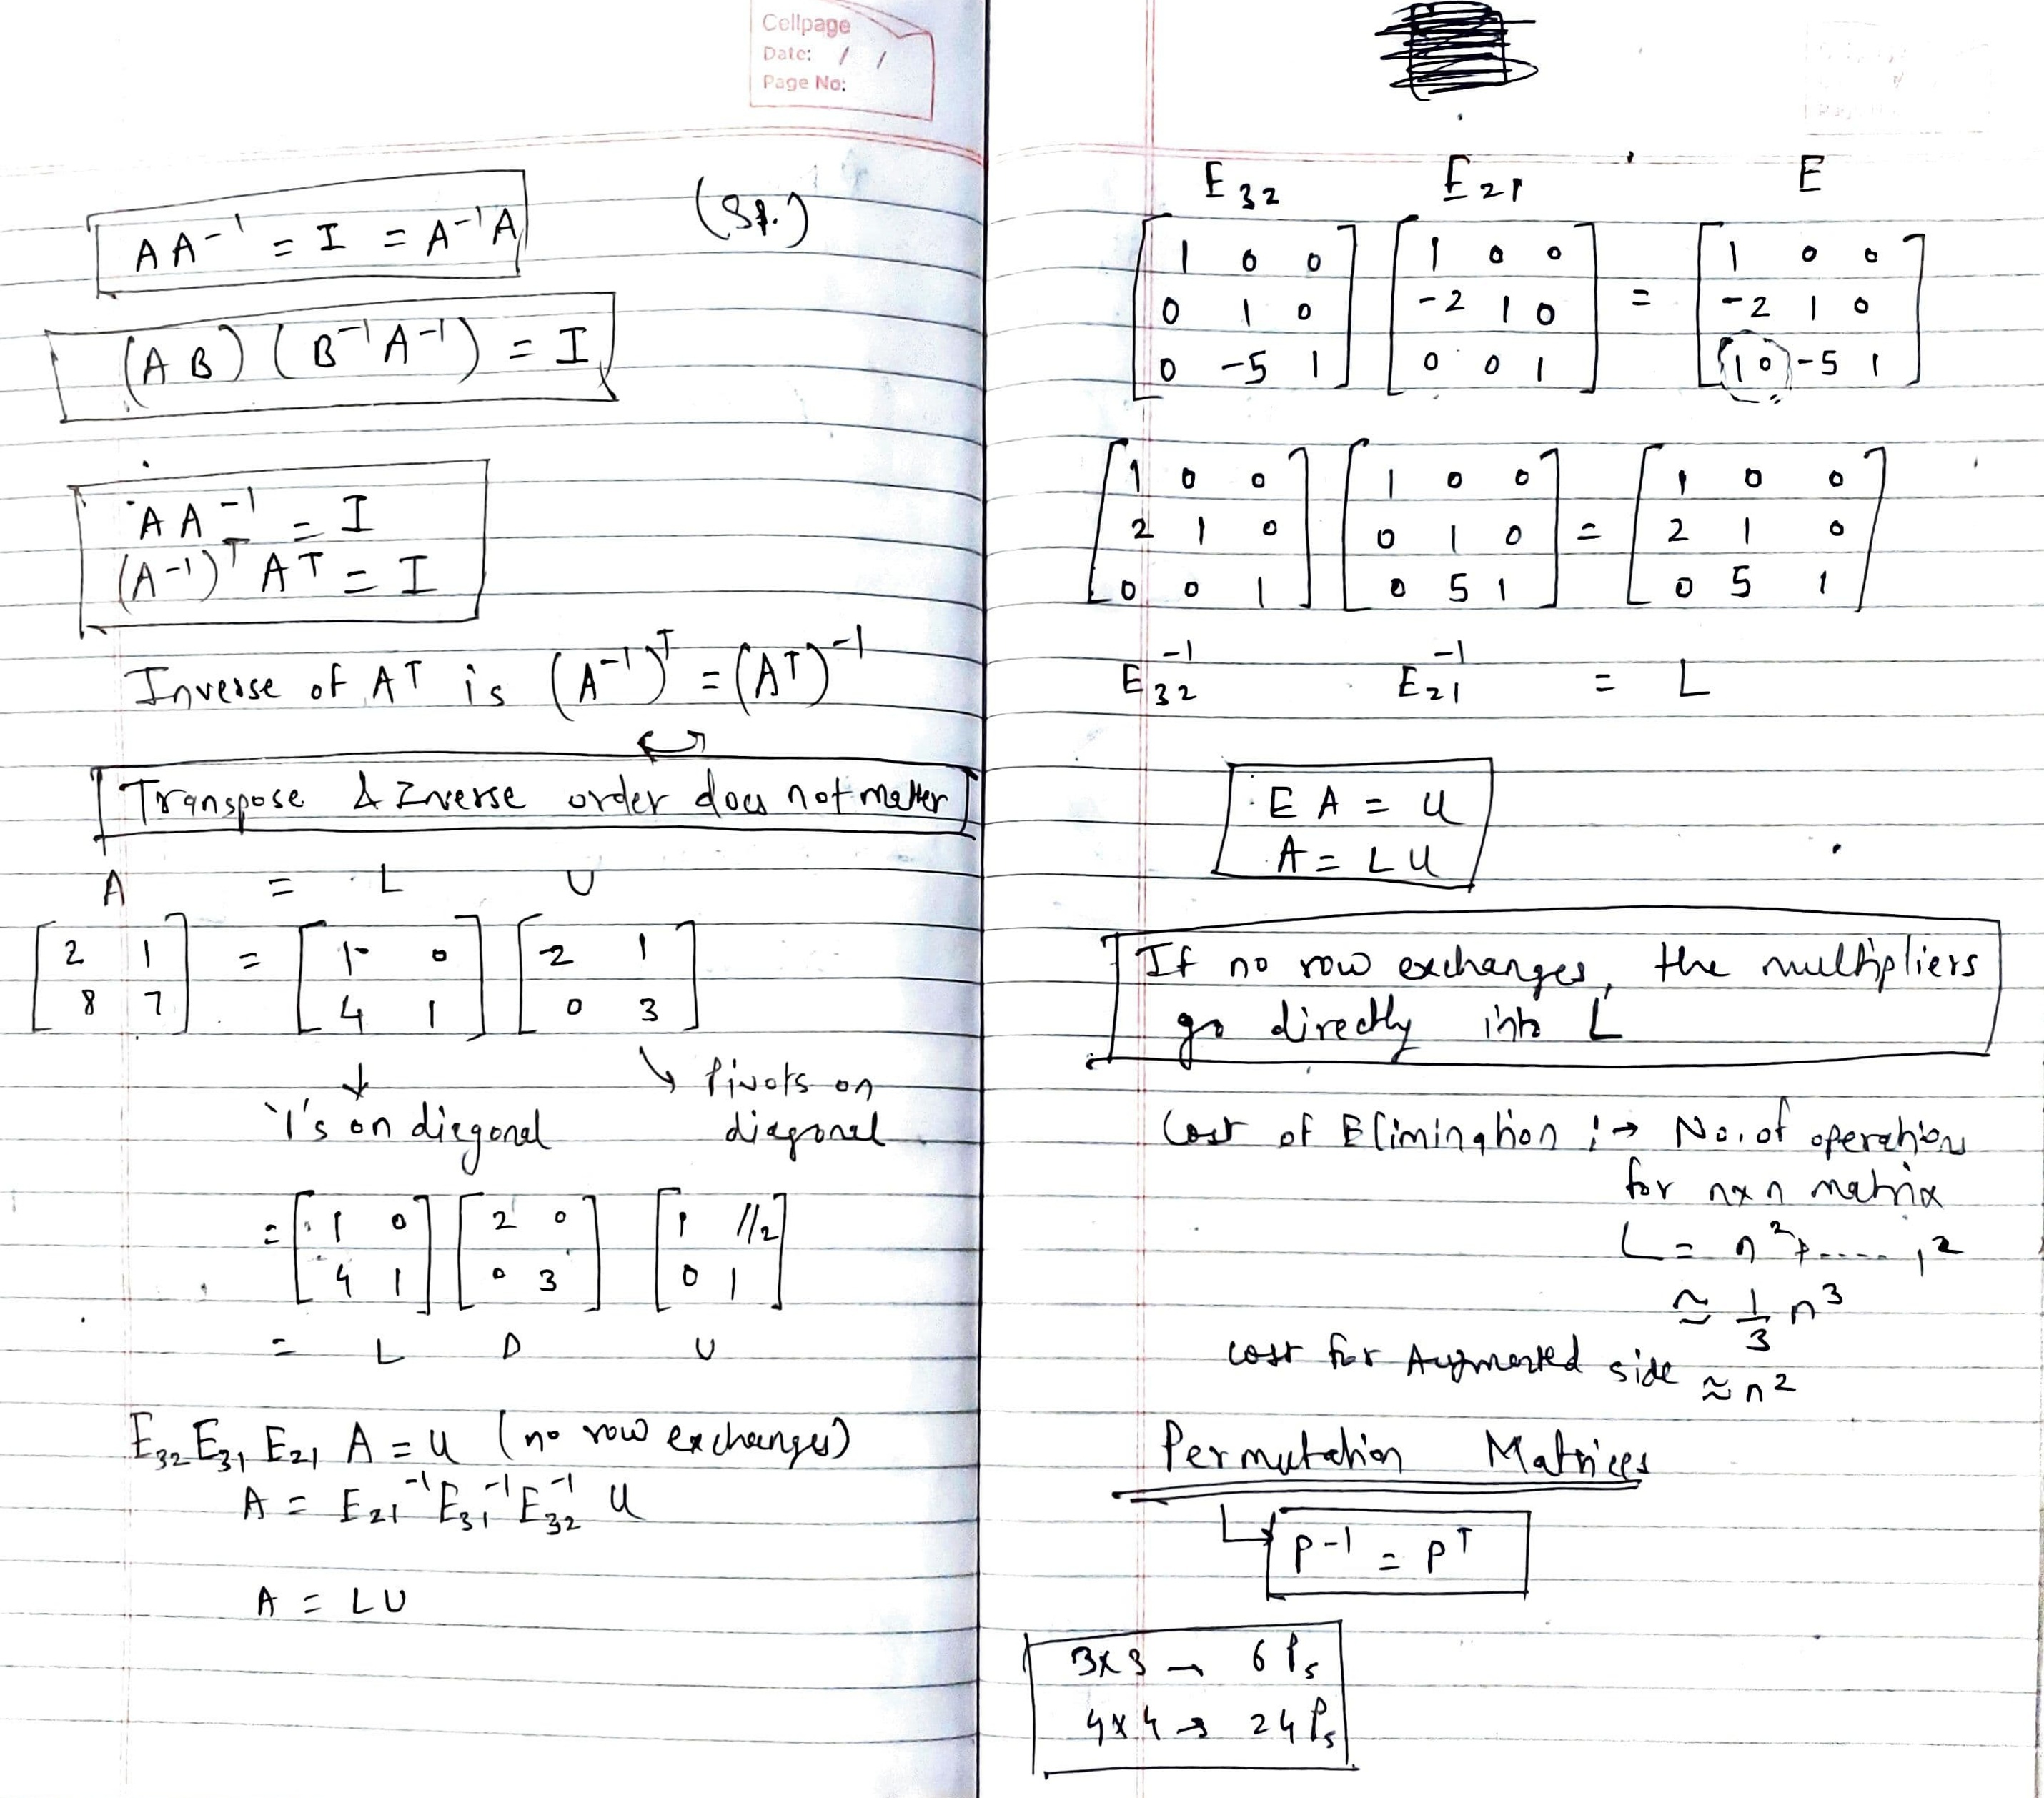 Cellpage
Date: / /
Page No:
AA⁻¹ = I = A⁻¹A
(AB) (B⁻¹A⁻¹) = I
AA⁻¹ = I
(A⁻¹)ᵀ Aᵀ = I
Inverse of Aᵀ is (A⁻¹)ᵀ = (Aᵀ)⁻¹
Transpose & Inverse order does not matter
A = L U
[2 1; 8 7] = [1 0; 4 1] [2 1; 0 3]
'1's on diagonal
Pivots on diagonal
= [1 0; 4 1] [2 0; 0 3] [1 1/2; 0 1]
= L D U
E₃₂ E₃₁ E₂₁ A = U (no row exchanges)
A = E₂₁⁻¹ E₃₁⁻¹ E₃₂⁻¹ U
A = LU
E₃₂ E₂₁ E
[1 0 0; 0 1 0; 0 -5 1] [1 0 0; -2 1 0; 0 0 1] = [1 0 0; -2 1 0; 10 -5 1]
[1 0 0; 2 1 0; 0 0 1] [1 0 0; 0 1 0; 0 5 1] = [1 0 0; 2 1 0; 0 5 1]
E₃₂⁻¹ E₂₁⁻¹ = L
EA = U
A = LU
If no row exchanges, the multipliers
go directly into L
Cost of Elimination :→ No. of operation
for n×n matrix
L = n²+.....1²
≈ 1/3 n³
cost for Augmented side ≈ n²
Permutation Matrices
P⁻¹ = Pᵀ
3×3 → 6 Ps
4×4 → 24 Ps